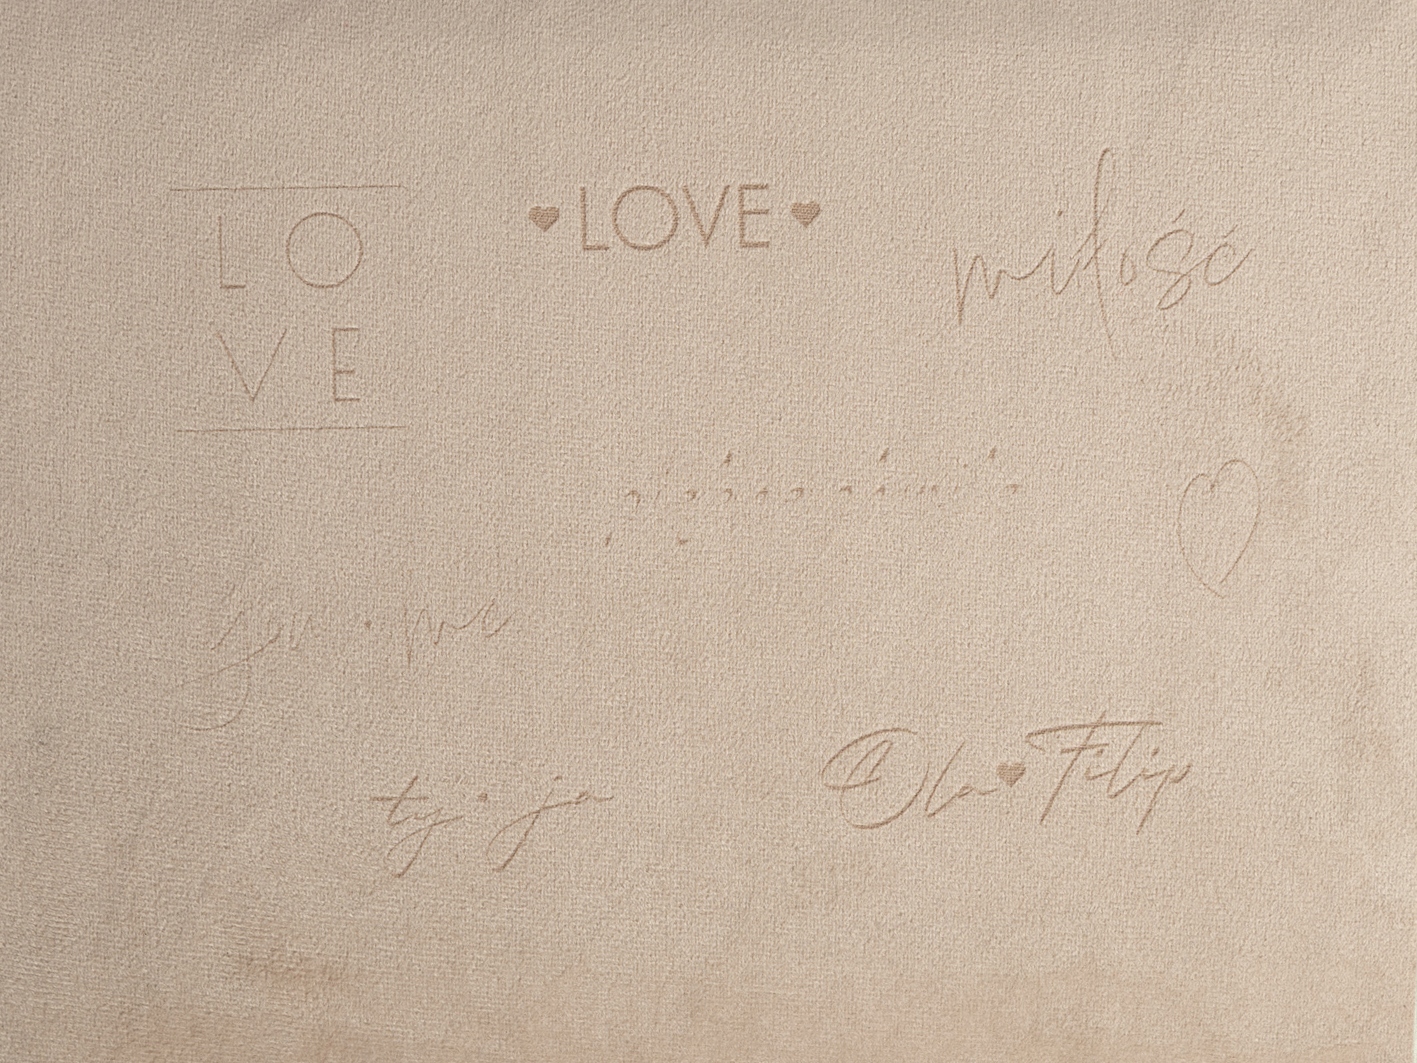 LO
VE
♥ LOVE ♥
miłość
you • me
ty • ja
Ola ♥ Filip